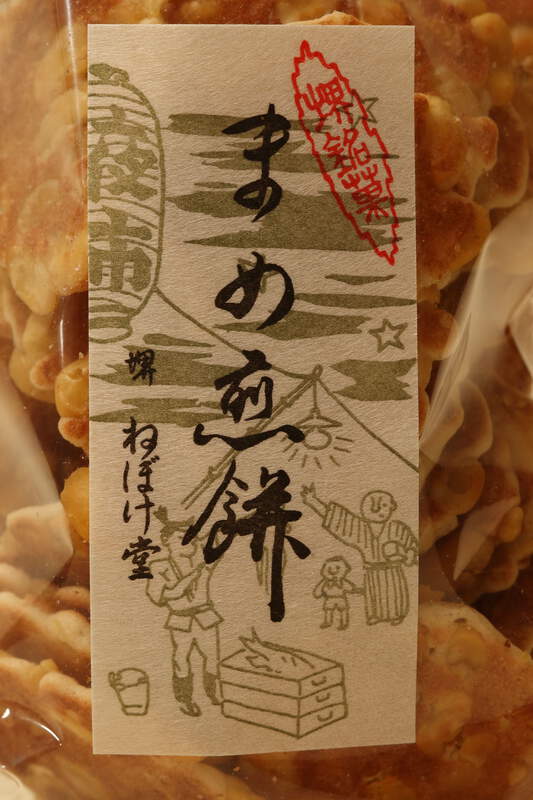 堺銘菓
まめ煎餅
堺 ねぼけ堂
夜市